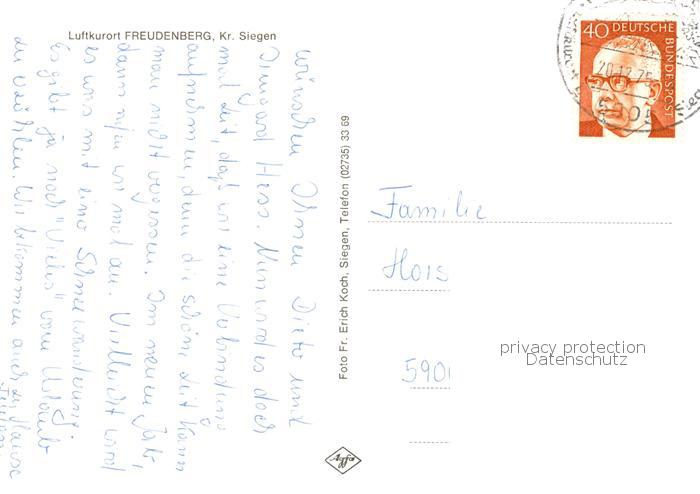 Luftkurort FREUDENBERG, Kr. Siegen
wünschen Ihnen Dieter und
Irmgard Hess. Nun wird es doch
mal Zeit, daß wir eine Verbindung
aufnehmen, denn die schöne Zeit kann
man nicht vergessen. Im neuen Jahr,
dann rufen wir mal an. Vielleicht wird
es was mit einer Schneewanderung.
Es gibt ja noch "Vieles" vom Urlaub
zu erzählen. Wir bekommen auch zu Hause
Foto Fr. Erich Koch, Siegen, Telefon (02735) 33 69
Agfa
40 DEUTSCHE
BUNDESPOST
20.12.75
5905
Familie
Hois
590
privacy protection
Datenschutz